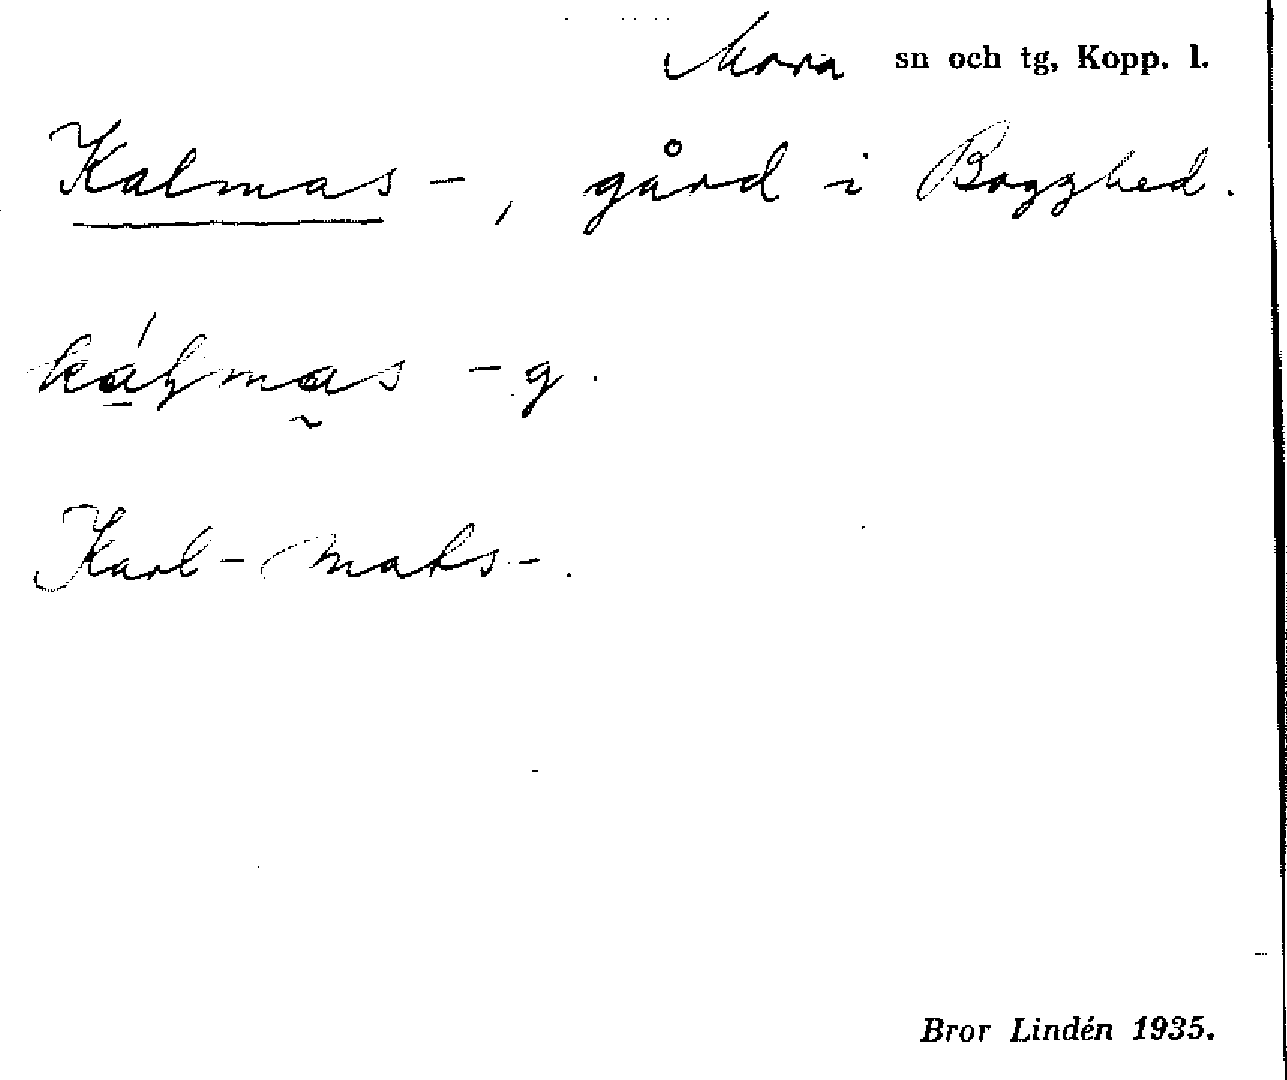 Mora sn och tg, Kopp. l.
Kalmas-, gård i Bogghed.
káɽmas -g.
Karl-mats-.
Bror Lindén 1935.